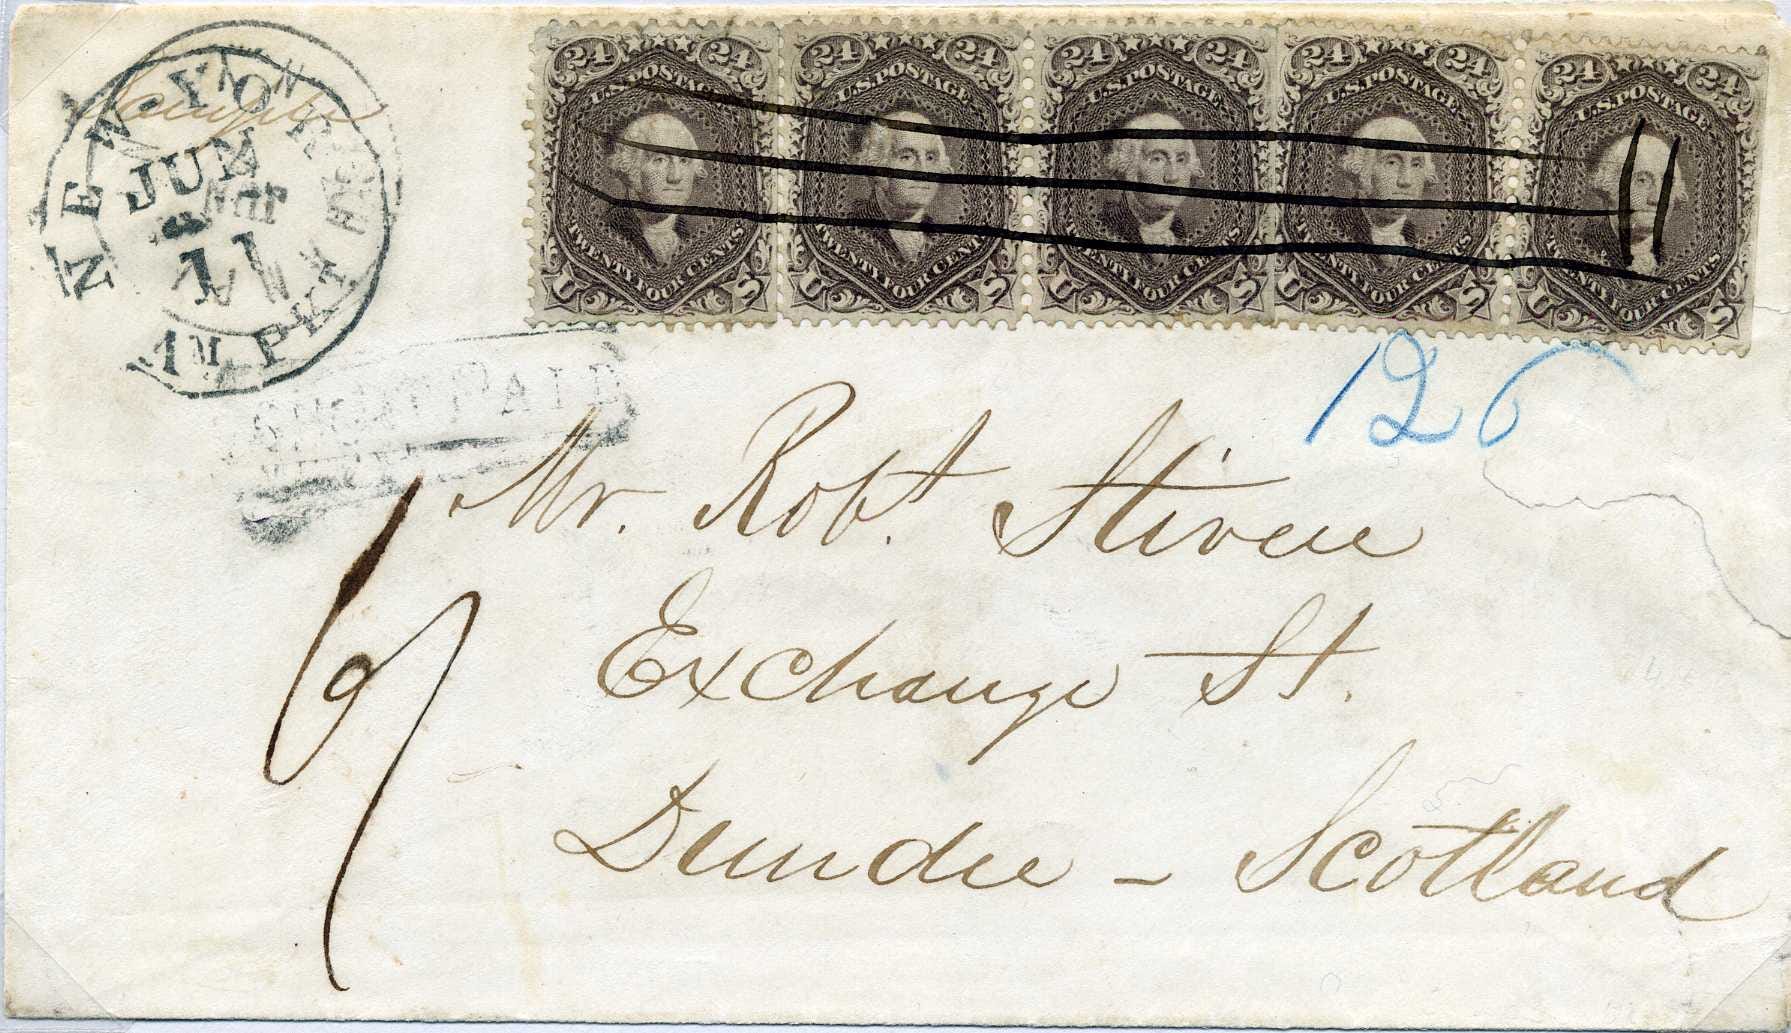 24 24 24 24 24 24 24 24 24 24
U.S. POSTAGE U.S. POSTAGE U.S. POSTAGE U.S. POSTAGE U.S. POSTAGE
TWENTY FOUR CENTS TWENTY FOUR CENTS TWENTY FOUR CENTS TWENTY FOUR CENTS TWENTY FOUR CENTS
U S U S U S U S U S
NEW YORK
JUN
11
AM PKT
SHORT PAID
126
Mr. Robt. Stiven
Exchange St.
Dundee - Scotland